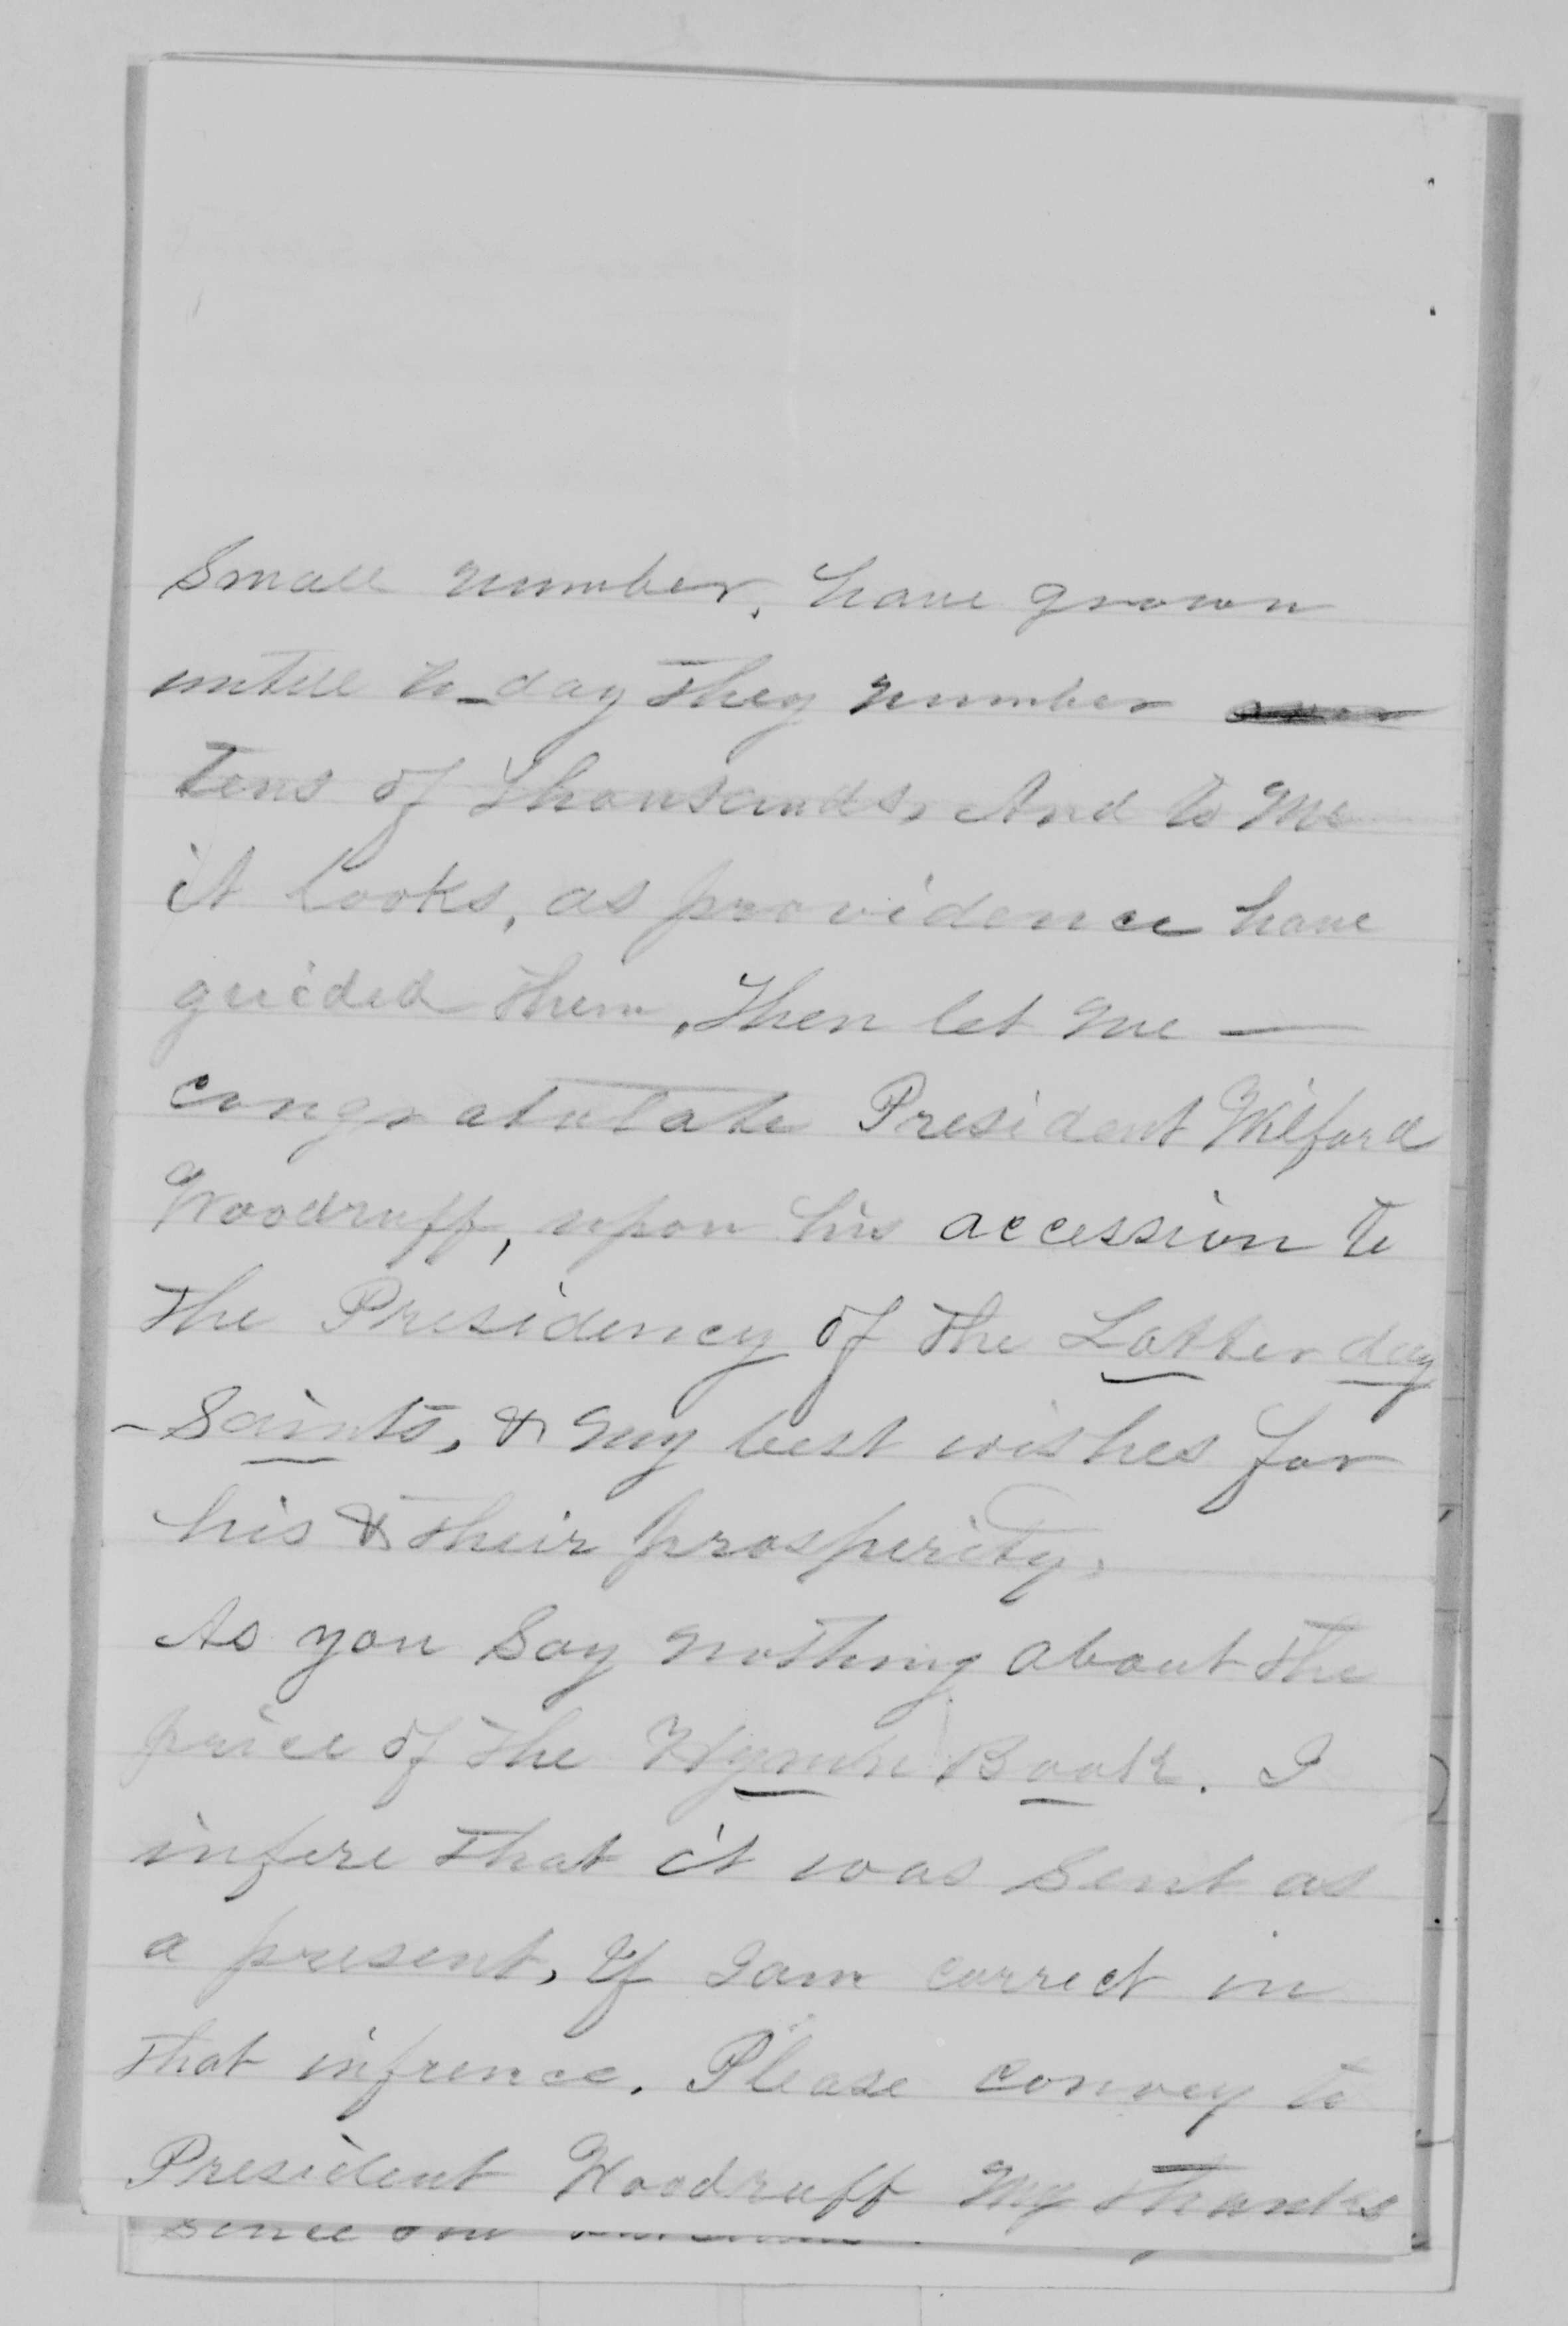 Small number, have grown
untill to-day they number
Tens of Thousands, And to me
it looks, as providence have
guided them, Then let me —
congratulate President Wilford
Woodruff, upon his accession to
the Presidency of the Latter day
- Saints, & my best wishes for
his & their prosperity,
As you Say nothing about the
price of the Hymn Book. I
infere that it was Sent as
a present, If I am correct in
that infrence. Please convey to
President Woodruff My thanks
Since our